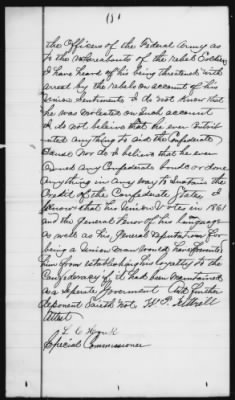 the Officers of the Federal Army as
to the whereabouts of the rebel Soldiers
I have heard of his being threatened with
arrest by the rebels on account of his
Union Sentiments I do not Know that
he was molested on such account
I do not believe that he ever contrib
uted anything to aid the Confederate
Cause Nor do I believe that he ever
owned any Confederate bonds or done
anything in any way to sustain the
Credit of the Confederate States I
Know that his Union Votes in 1861
and the General tenor of his language
as well as his General reputation for
being a Union man would have prevented
him from establishing his loyalty to the
Confederacy if it had been maintained
as a Seperate Government And further
deponent saith not
Attest
L C
Special Commissioner